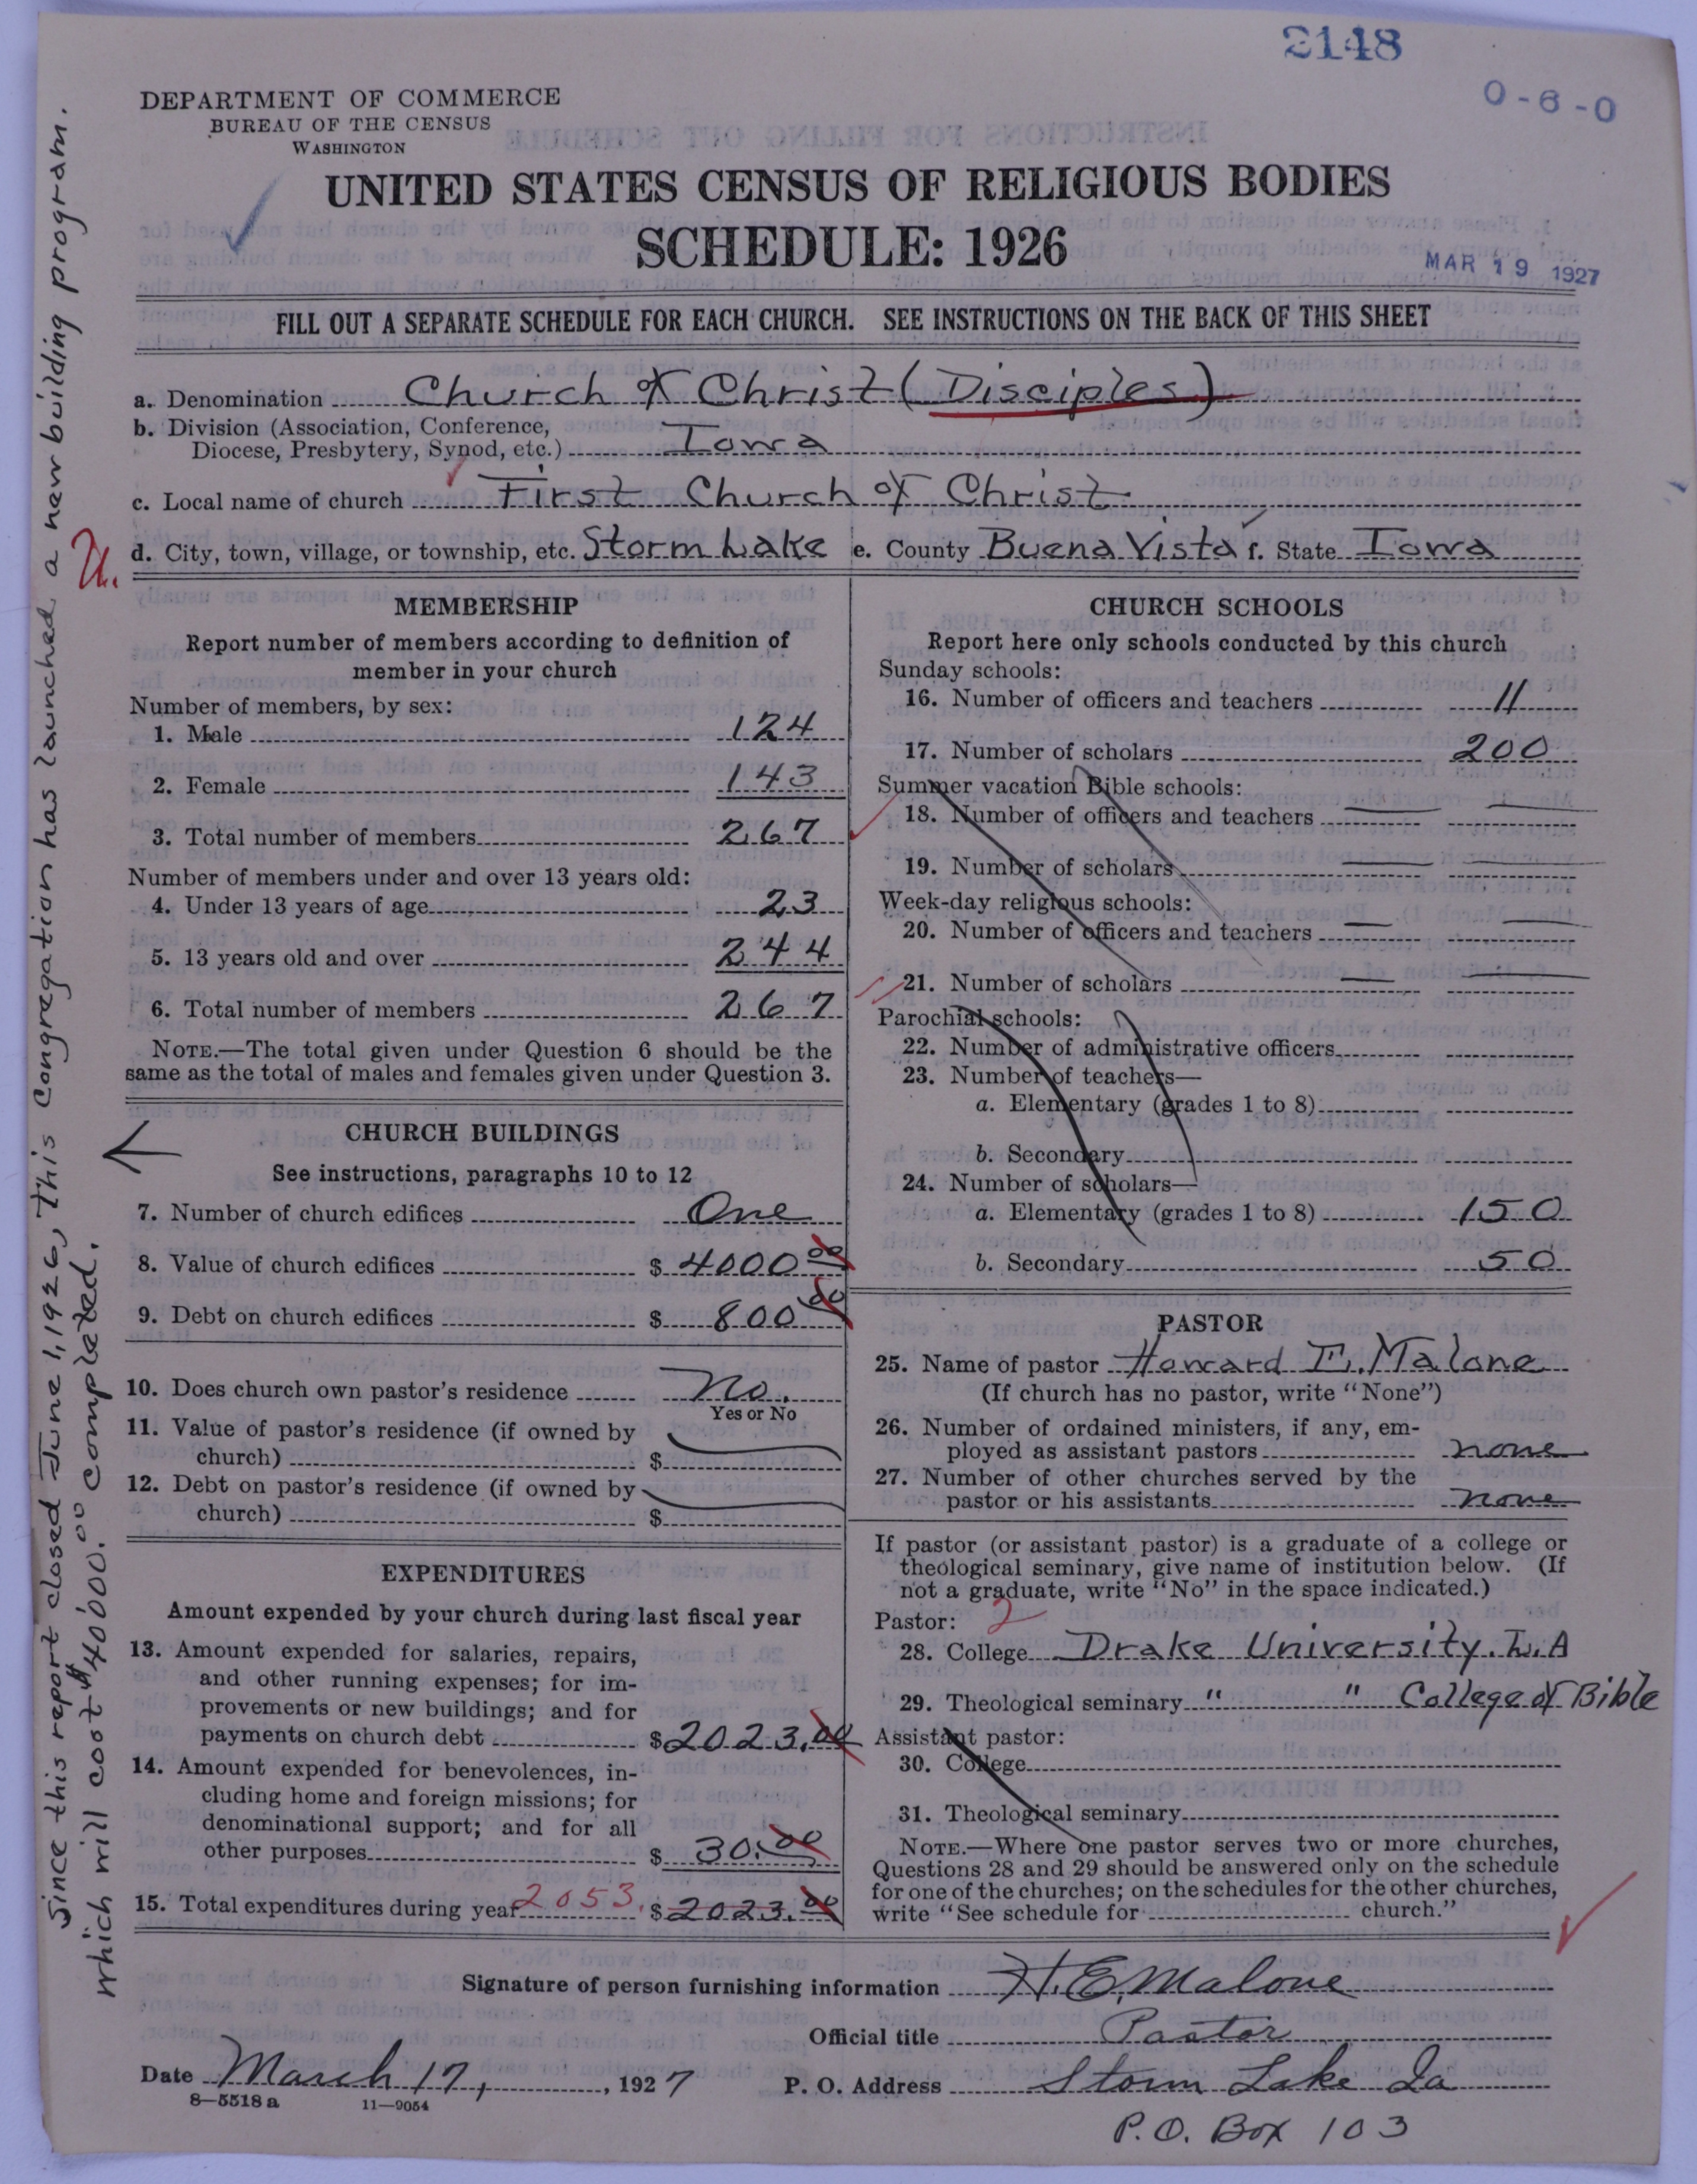 2148
0-6-0
DEPARTMENT OF COMMERCE
BUREAU OF THE CENSUS
WASHINGTON
UNITED STATES CENSUS OF RELIGIOUS BODIES
SCHEDULE: 1926
MAR 19 1927
FILL OUT A SEPARATE SCHEDULE FOR EACH CHURCH. SEE INSTRUCTIONS ON THE BACK OF THIS SHEET
a. Denomination Church of Christ (Disciples)
b. Division (Association, Conference,
Diocese, Presbytery, Synod, etc.) Iowa
c. Local name of church First Church of Christ
d. City, town, village, or township, etc. Storm Lake e. County Buena Vista f. State Iowa
MEMBERSHIP
Report number of members according to definition of
member in your church
Number of members, by sex:
1. Male 124
2. Female 143
3. Total number of members 267
Number of members under and over 13 years old:
4. Under 13 years of age 23
5. 13 years old and over 244
6. Total number of members 267
NOTE.—The total given under Question 6 should be the
same as the total of males and females given under Question 3.
CHURCH BUILDINGS
See instructions, paragraphs 10 to 12
7. Number of church edifices One
8. Value of church edifices $ 4000 00
9. Debt on church edifices $ 800 00
10. Does church own pastor's residence No.
Yes or No
11. Value of pastor's residence (if owned by
church) $
12. Debt on pastor's residence (if owned by
church) $
EXPENDITURES
Amount expended by your church during last fiscal year
13. Amount expended for salaries, repairs,
and other running expenses; for im-
provements or new buildings; and for
payments on church debt $2023.00
14. Amount expended for benevolences, in-
cluding home and foreign missions; for
denominational support; and for all
other purposes $ 30.00
15. Total expenditures during year 2053. $ 2023.00
CHURCH SCHOOLS
Report here only schools conducted by this church
Sunday schools:
16. Number of officers and teachers 11
17. Number of scholars 200
Summer vacation Bible schools:
18. Number of officers and teachers
19. Number of scholars
Week-day religious schools:
20. Number of officers and teachers
21. Number of scholars
Parochial schools:
22. Number of administrative officers
23. Number of teachers—
a. Elementary (grades 1 to 8)
b. Secondary
24. Number of scholars—
a. Elementary (grades 1 to 8) 150
b. Secondary 50
PASTOR
25. Name of pastor Howard E. Malone
(If church has no pastor, write "None")
26. Number of ordained ministers, if any, em-
ployed as assistant pastors none
27. Number of other churches served by the
pastor or his assistants none
If pastor (or assistant pastor) is a graduate of a college or
theological seminary, give name of institution below. (If
not a graduate, write "No" in the space indicated.)
Pastor: 2
28. College Drake University. L.A
29. Theological seminary " " College of Bible
Assistant pastor:
30. College
31. Theological seminary
NOTE.—Where one pastor serves two or more churches,
Questions 28 and 29 should be answered only on the schedule
for one of the churches; on the schedules for the other churches,
write "See schedule for church."
Signature of person furnishing information H. E. Malone
Official title Pastor
Date March 17, , 1927 P. O. Address Storm Lake Ia
8—5518a 11—9054
P.O. Box 103
Since this report closed June 1, 1926, this congregation has launched a new building program.
which will cost $40'000.00 completed.